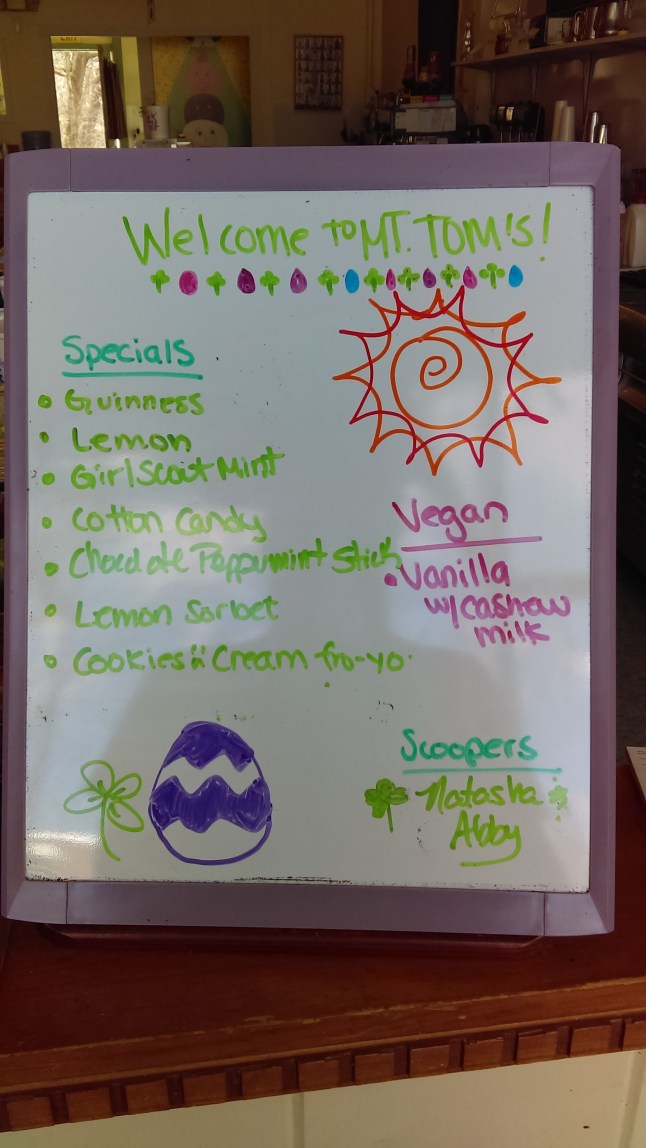 Welcome to MT. TOM'S!
Specials
Guinness
Lemon
Girl Scout Mint
Cotton Candy
Chocolate Peppermint Stick
Lemon Sorbet
Cookies 'n' Cream fro-yo
Vegan
Vanilla
w/cashew
milk
Scoopers
Natasha
Abby